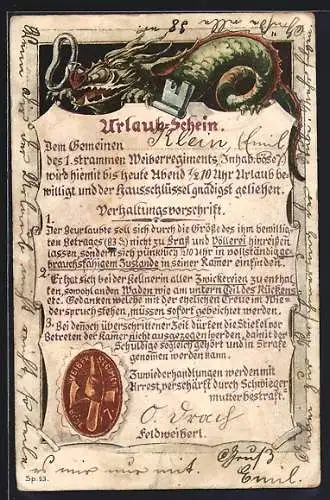 Urlaub-Schein.
Dem Gemeinen Klein, Emil
des 1. strammen Weiberregiments, (Inhab. böse 7)
wird hiemit bis heute Abend ½10 Uhr Urlaub be-
willigt und der Hausschlüssel gnädigst geliehen.
Verhaltungsvorschrift.
1.
Der Beurlaubte soll sich durch die Größe des ihm bewillig-
ten Betrages (83 ₰) nicht zu Fraß und Völlerei hinreißen
lassen, sondern sich pünktlich ½10 Uhr in vollständig ge-
brauchsfähigem Zustande in seiner Kamer einfinden.
2. Er hat sich bei der Kellnerin aller Zwickereien zu enthal
ten, sowohl an den Waden wie am untern Teil des Rückens
etc. Gedanken welche mit der ehelichen Treue im Wie-
derspruch stehen, müssen sofort gebeichtet werden.
3. Bei dennoch überschrittener Zeit dürfen die Stiefel vor
Betreten der Kamer nicht ausgezogen werden, damit der
Schuldige sogleich gehört und in Strafe
genomen werden kann.
Zuwiderhandlungen werden mit
Arrest, verschärft durch Schwieger
mutter bestraft.
O. Drach
Feldweiberl.
Gruß
Emil.
Sp. 23.